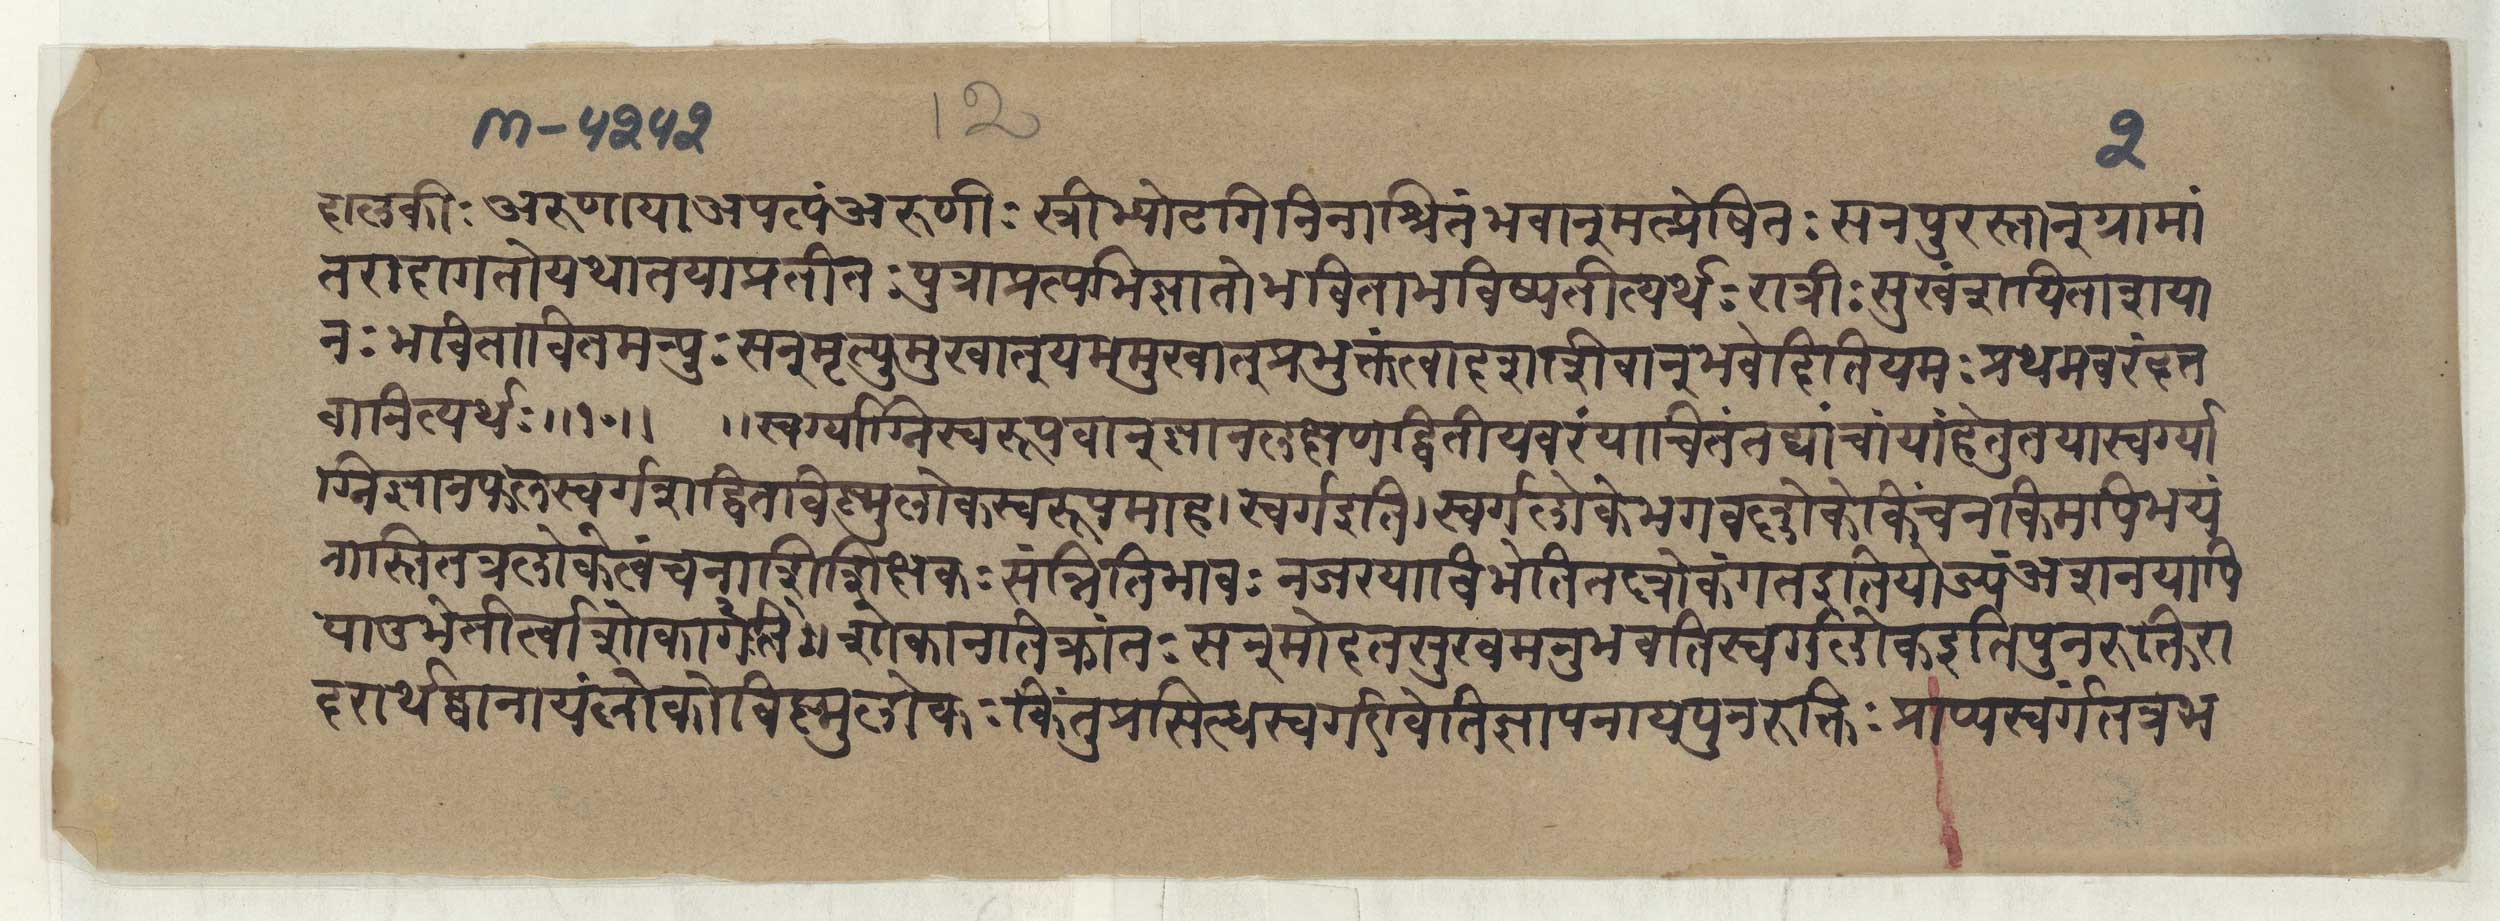 m-५२५२
12
२
द्दालकीः अरुणाया अपत्यं अरुणीः स्त्रीभ्योटगिनिनाश्रितं भवान् मत्प्रेषितः सन् पुरस्तान् ग्रामां
तराद्दागतो यथा तया प्रतीतः पुत्रा प्रत्यभिज्ञातो भविता भविष्यतीत्यर्थः रात्रीः सुखं शयिता शया
नः भविता वितमन्युः सन् मृत्युमुखात् यममुखात् प्रभुक्तं त्वा ददृशिवान् भवेदिति यमः प्रथमवरं दत्त
वानित्यर्थः ॥१०॥ ॥ स्वर्ग्याग्निस्वरूपवानुज्ञानलक्षण द्वितीयवरं याचितं तद्यांचां यां हेतुतया स्वर्ग्या
ग्निज्ञानफलस्वर्गशद्विताविष्णुलोकस्वरूपमाह। स्वर्ग इति। स्वर्गलोके भगवल्लोके किंचन किमपि भयं
नास्ति तत्र लोके त्वं च नाशिशिक्षकः संन्निति भावः न जरया बिभेति तल्लोकं गत इति योज्यं अशनया पि
पा उभे तीर्त्वा शोकार्गति॥ शोकानातिक्रांतः सन् मोदत सुखमनुभवति स्वर्गलोक इति पुनरुक्तिरा
दरार्थष्वा नायं लोको विष्णुलोकः किंतु प्रसिल्धस्वर्ग एवेति ज्ञापनाय पुनरुक्तिः प्राप्य स्वर्गं तत्र भ